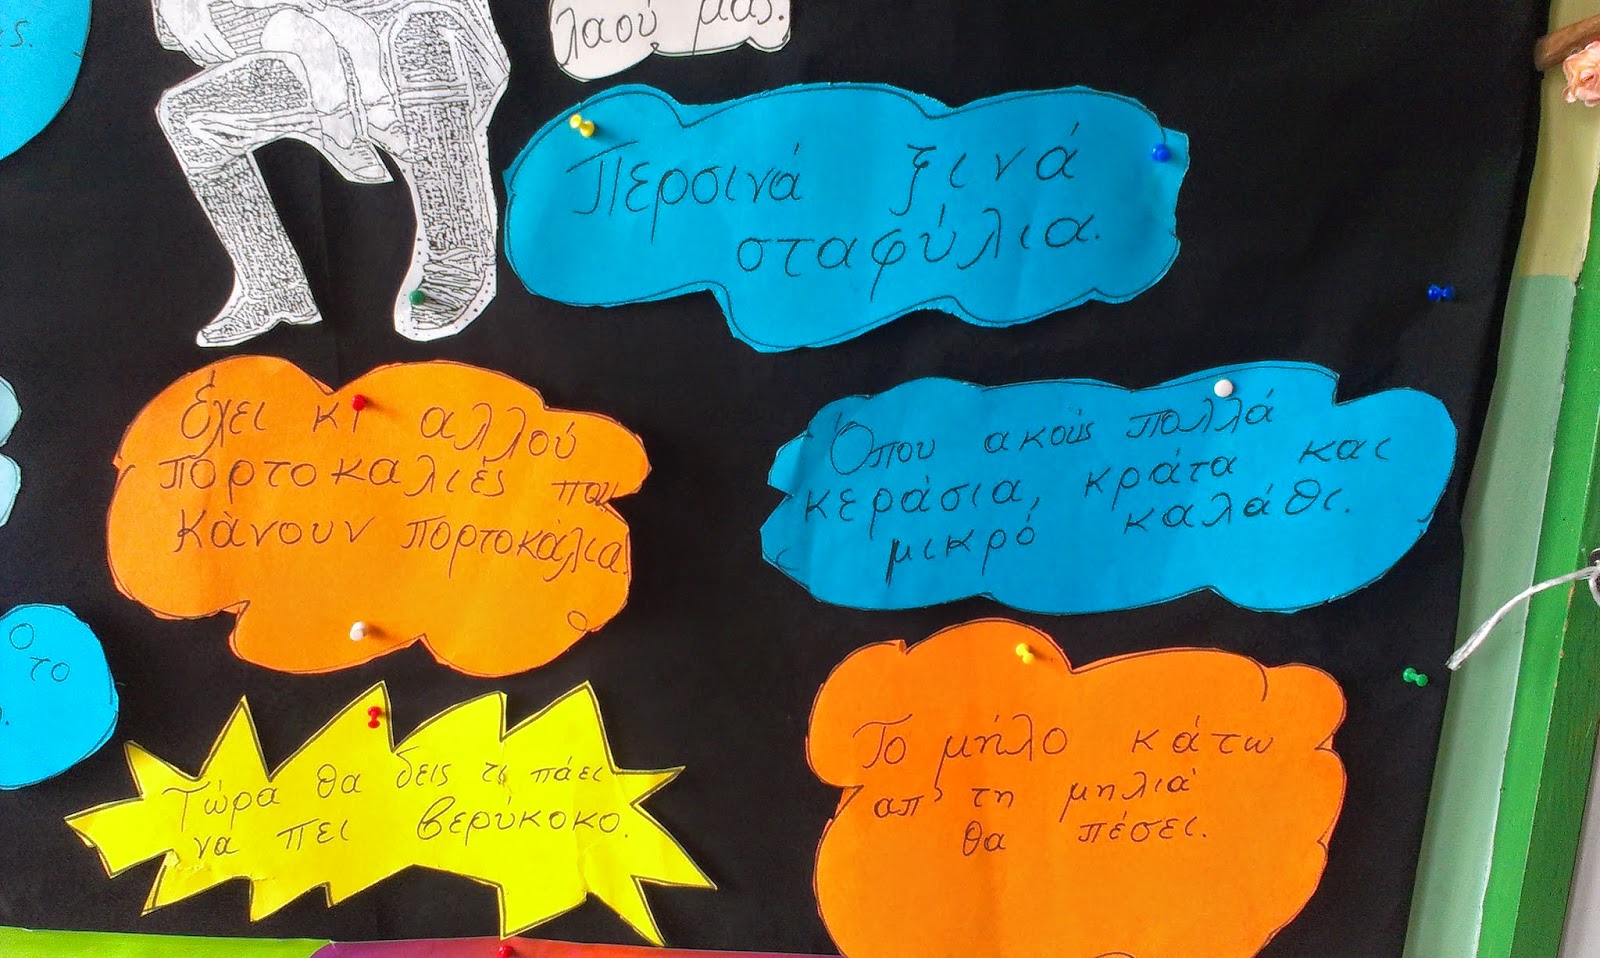 λαού μας.
Περσινά ξινά
σταφύλια.
Έχει κι αλλού
πορτοκαλιές που
κάνουν πορτοκάλια.
Όπου ακούς πολλά
κεράσια, κράτα και
μικρό καλάθι.
ο
το
Τώρα θα δεις τι πάει
να πει βερύκοκο.
Το μήλο κάτω
απ' τη μηλιά
θα πέσει.